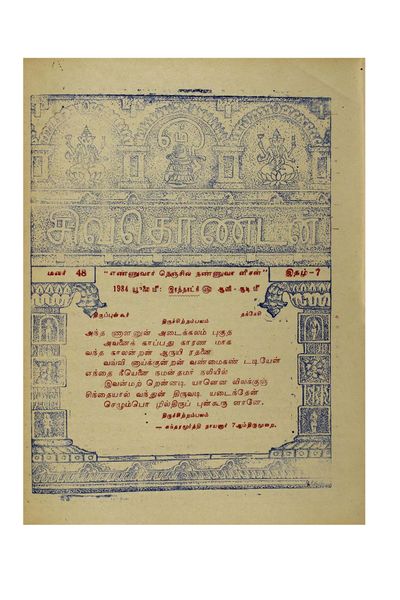 சிவதொண்டன்
மலர் 48
"எண்ணுவார் நெஞ்சில் நண்ணுவா னீசன்"
இதழ்-7
1984 யூலை மீ: இரத்தாட்சி ௵ ஆனி-ஆடி மீ
திருப்புன்கூர்
தக்கேசி
திருச்சிற்றம்பலம்
அந்த ணாளனுன் அடைக்கலம் புகுத
அவனைக் காப்பது காரண மாக
வந்த காலன்றன் ஆருயி ரதனை
வவ்வி னாய்க்குன்றன் வண்மைகண் டடியேன்
எந்தை நீயெனை நமன்தமர் நலியில்
இவன்மற் றென்னடி யானென விலக்குஞ்
சிந்தையால் வந்துன் திருவடி யடைந்தேன்
செழும்பொ ழில்திருப் புன்கூரு ளானே.
திருச்சிற்றம்பலம்
— சுந்தரமூர்த்தி நாயனார் 7ஆம்திருமுறை.